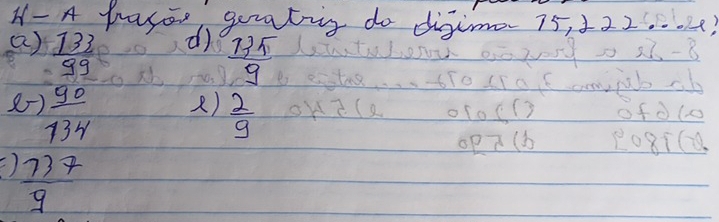 4- A fração geratriz da dízima 15,222... é:
a) 133 d) 135
99 9
b) 90 e) 2
134 9
c) 137
9